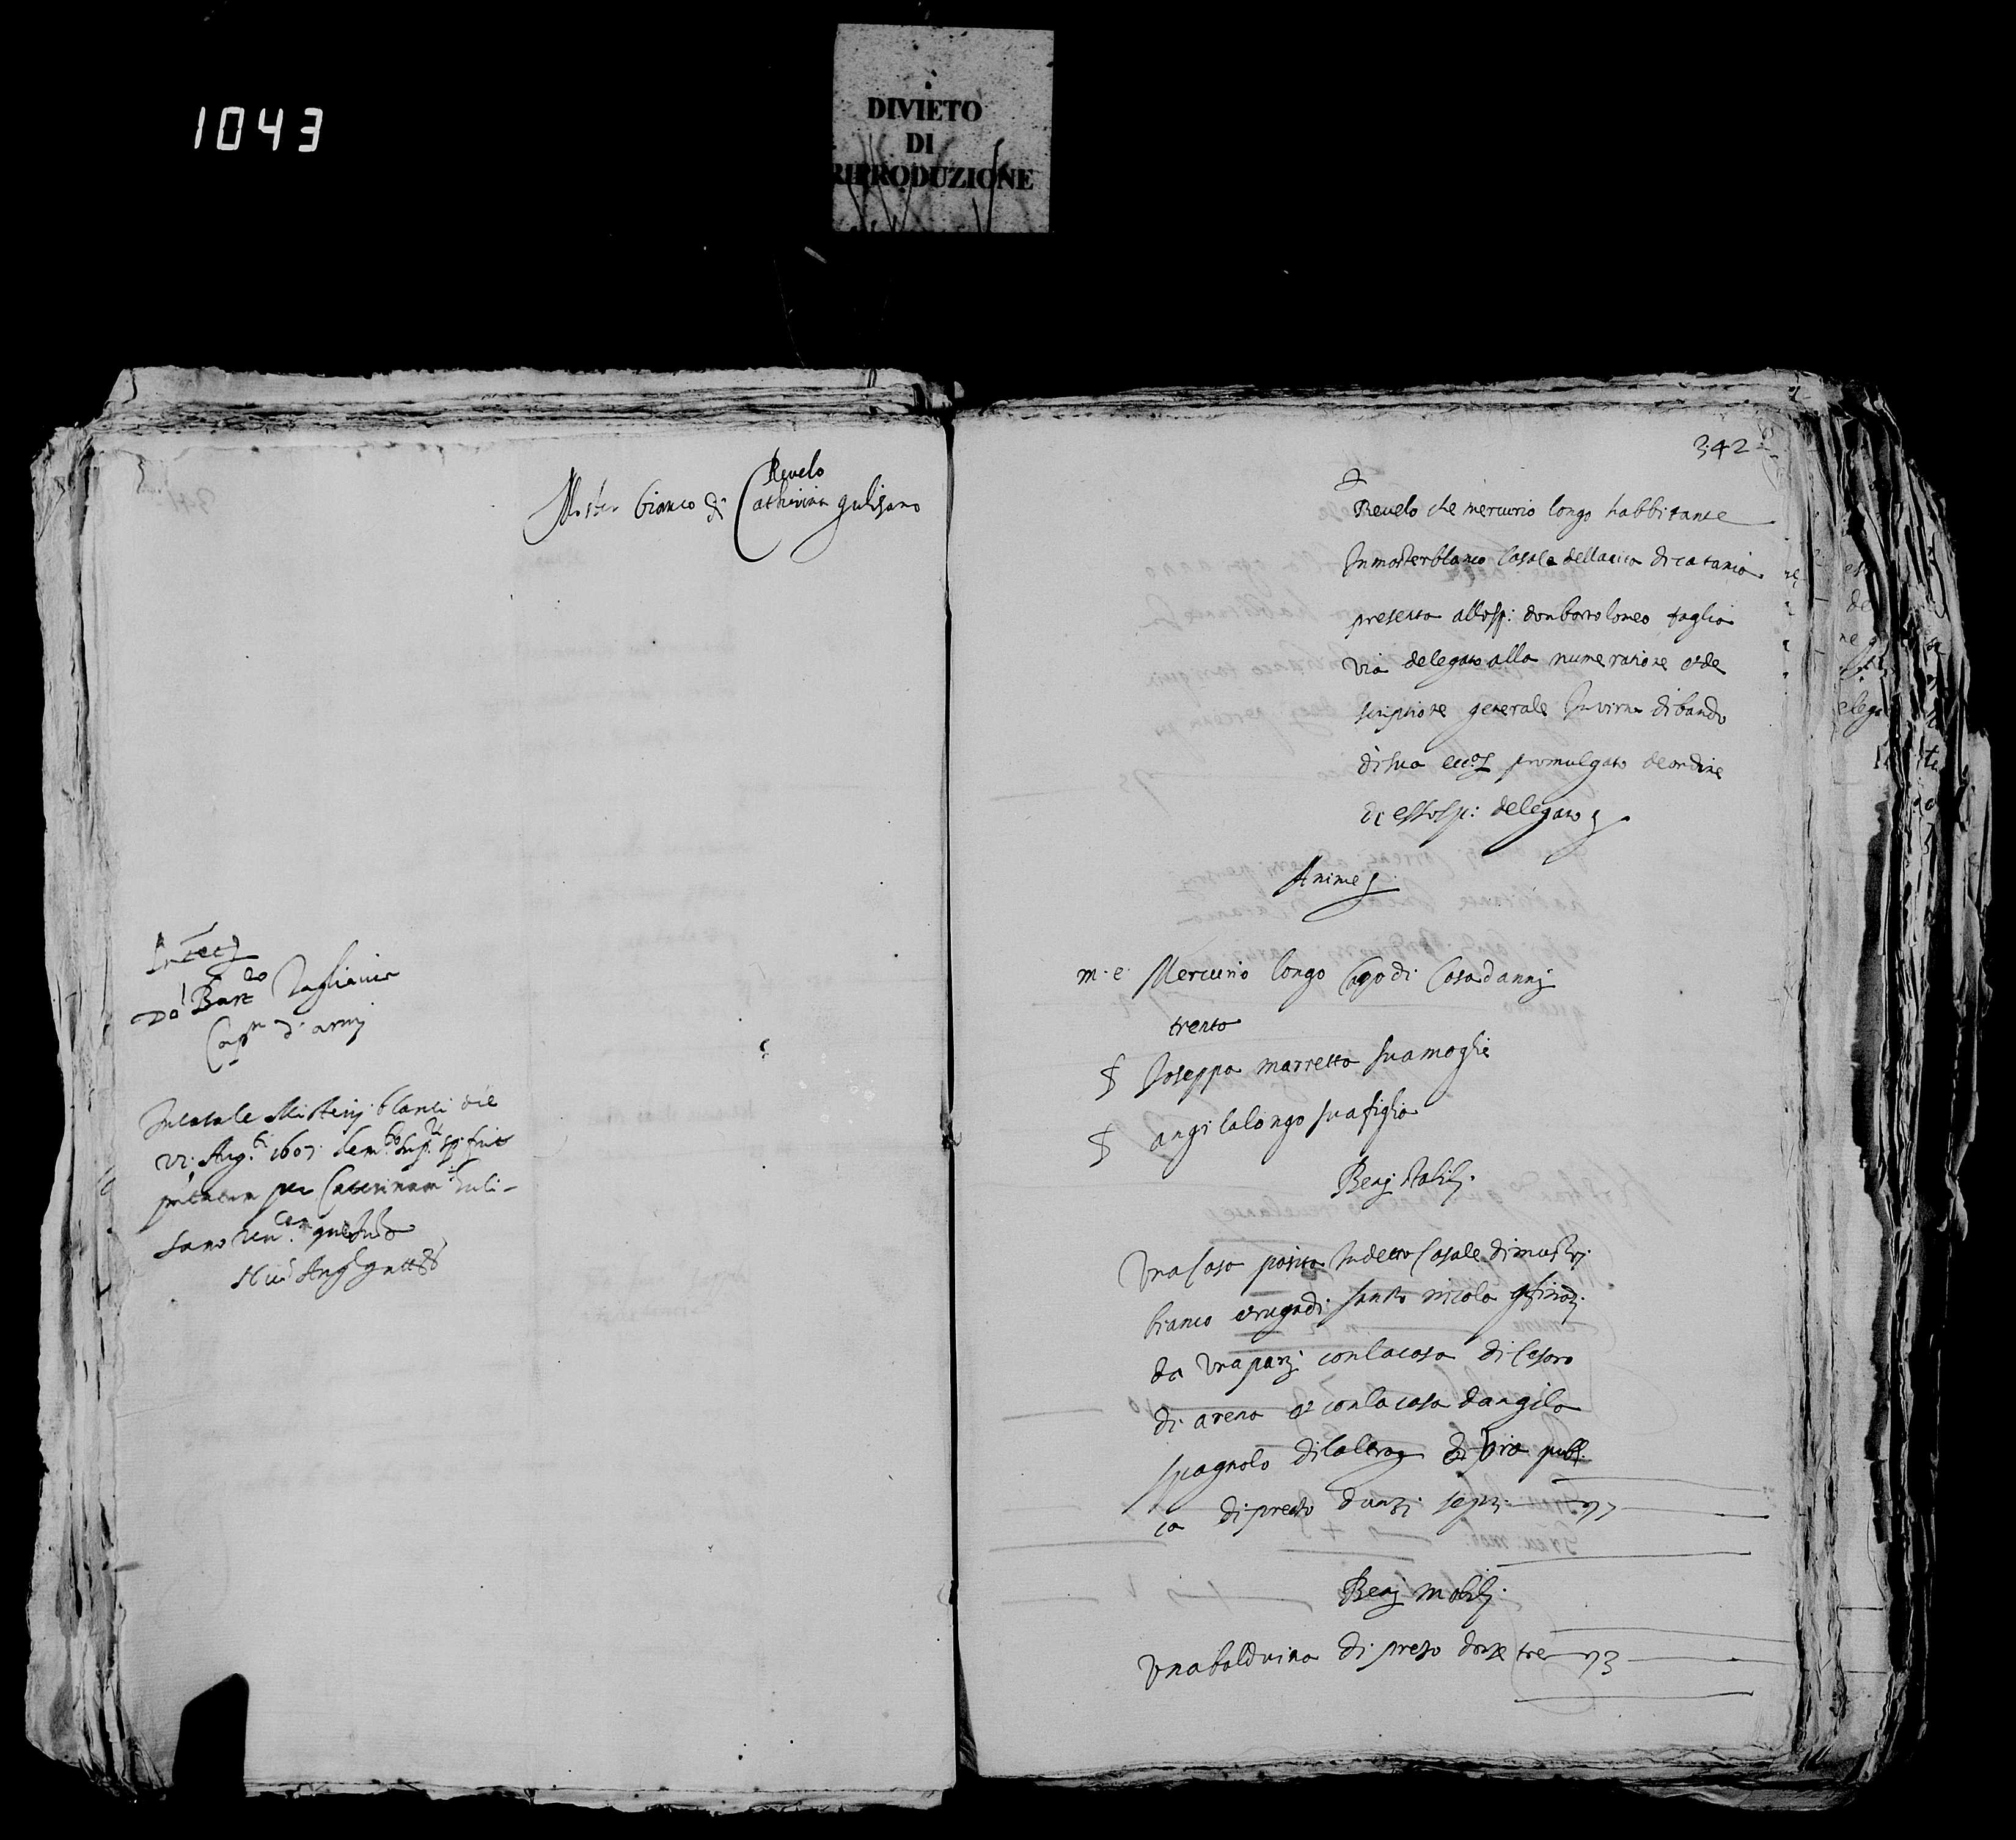 1043
DIVIETO
DI
RIPRODUZIONE
Revelo
Mister bianco di Catherina gulisano
Don Bart.eo Tagliavia
Cap.n d'armi
In casale Misterij blanci die
1607
per Caterinam Guli-
sano
342
Revelo che mercurio longo habbitante
In mosterblanco Casale della cita di catania
presenta allo sp: don bartolomeo taglia
via delegato alla numeratione et de
scriptione generale In virtu di bando
di sua ecc.a promulgato de ordine
di esso sp: delegato
Anime
m. e. Mercurio longo Capo di Casa d anni
trenta
f Joseppa marretta sua moglie
f angila longo sua figlia
Beni stabili
Una Casa posita In detto Casale di mustri
bianco contrada di santo nicola
da una parti con la casa di Cesaro
di arena et con la casa d angilo
spagnolo di l altra et via publi
ca di prezzo d unzi septi 7
Beni mobili
Una balduina di prezo d onze tre 3